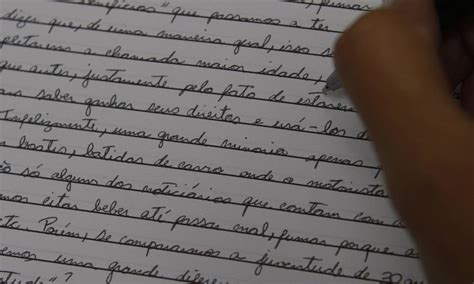 benefícios" que passamos a ter
dizer que, de uma maneira qual, isso s
pletarem a chamada maior idade,
que antes, justamente pelo fato de
saber ganhar seus direitos e usá-los d
Infelizmente, uma grande minoria apenas p
a boates, batidas de carro onde o motorista
ão só alguns dos noticiários que contam com a
mos citar beber até passar mal, fumar porque a
ta. Porém, se compararmos a juventude de 20 an
emos uma grande difere
tude"?